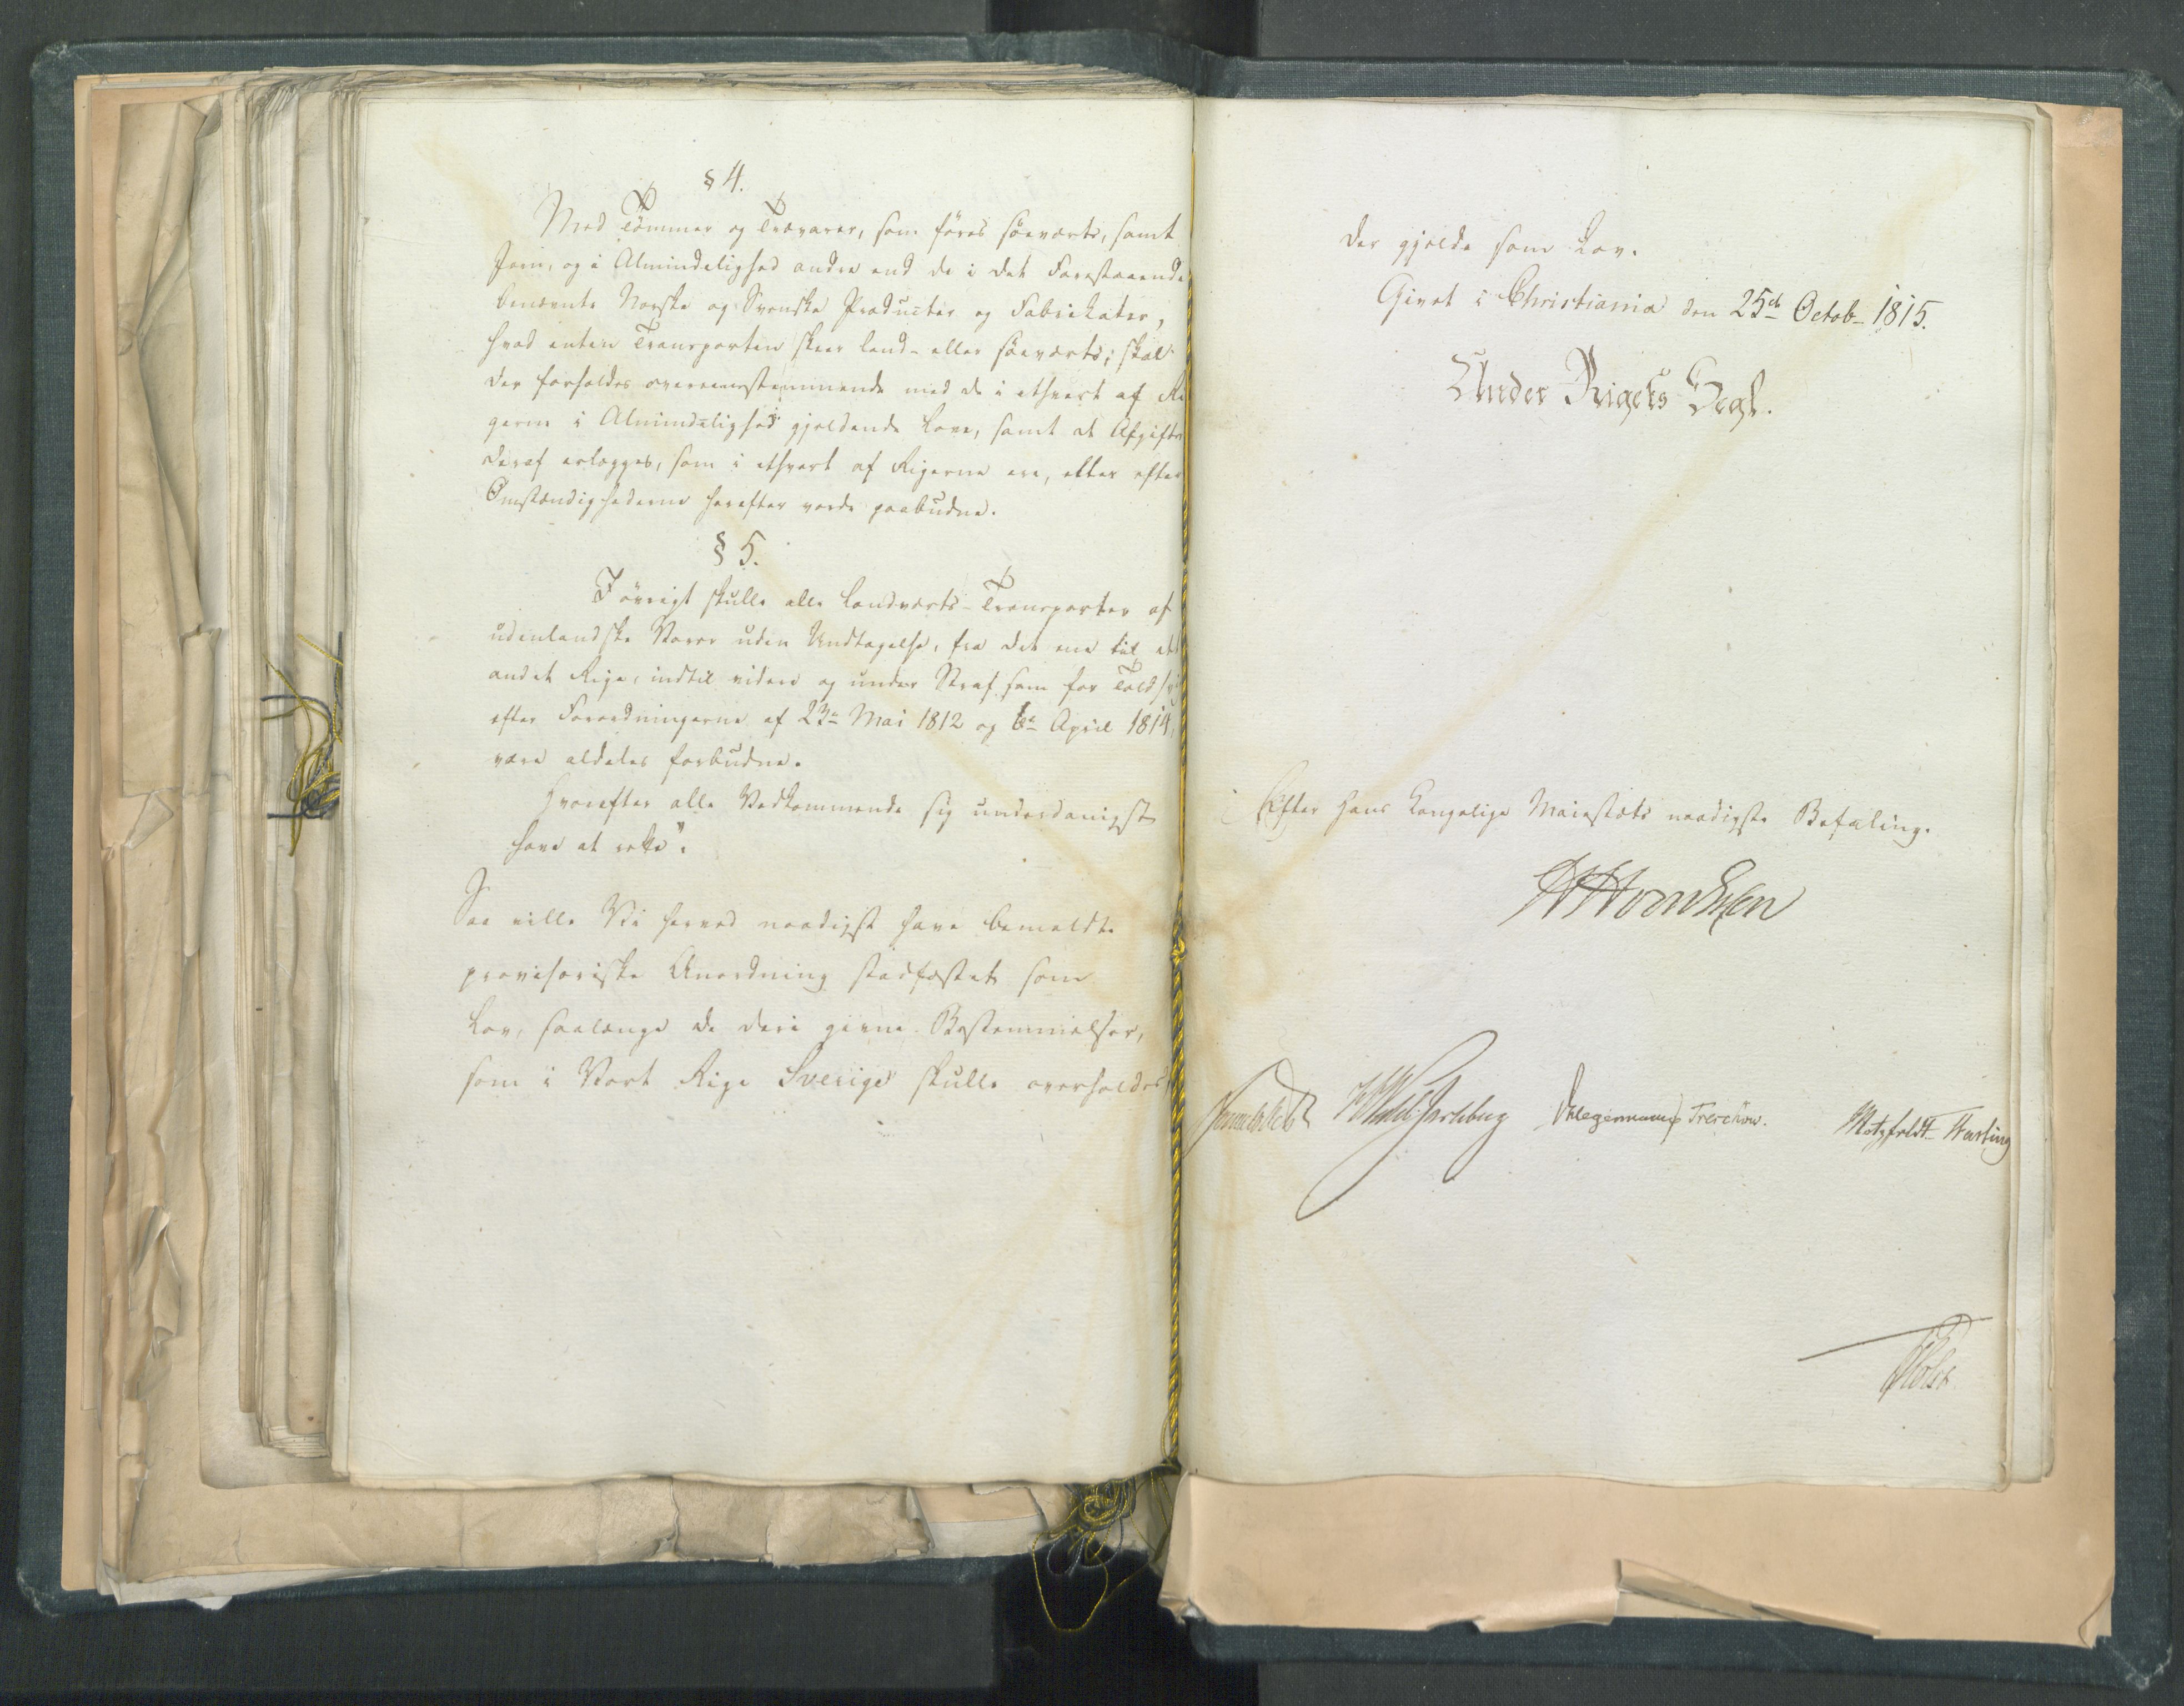 § 4.
Med Tömmer og Trævarer, som föres söeværts, samt
Jern, og i Almindelighed andre end de i det Forestaaende
benævnte Norske og Svenske Producter og Fabrikater,
hvad enten Transporten skeer land- eller söeværts; skal
der forholdes overeensstemmende med de i ethvert af Ri
gerne i Almindelighed gjældende Love, samt de Afgifter
deraf erlægges, som i ethvert af Rigerne ere, eller efter
Omstændighederne herefter vorde paabudne.
§ 5.
I övrigt skulle alle Landværts-Transporter af
udenlandske Varer uden Undtagelse, fra det ene til det
andet Rige, indtil videre og under Straf som for Told
efter Forordningerne af 23de Mai 1812 og 6te April 1814,
være aldeles forbudne.
Hvorefter alle Vedkommende sig underdanigst
have at rette".
Saa ville Vi herved naadigst have bemeldte
provisoriske Anordning stadfæstet som
Lov, saalænge de deri givne Bestemmelser,
som i Vort Rige Sverige skulle overholdes,
der gjelde som Lov.
Givet i Christiania den 25de Octob. 1815.
Under Rigets Segl.
Efter Hans Kongelige Maiestæts naadigste Befaling.
Sommerhielm Wedel-Jarlsberg Treschow. Motzfeldt Hasting
Holst